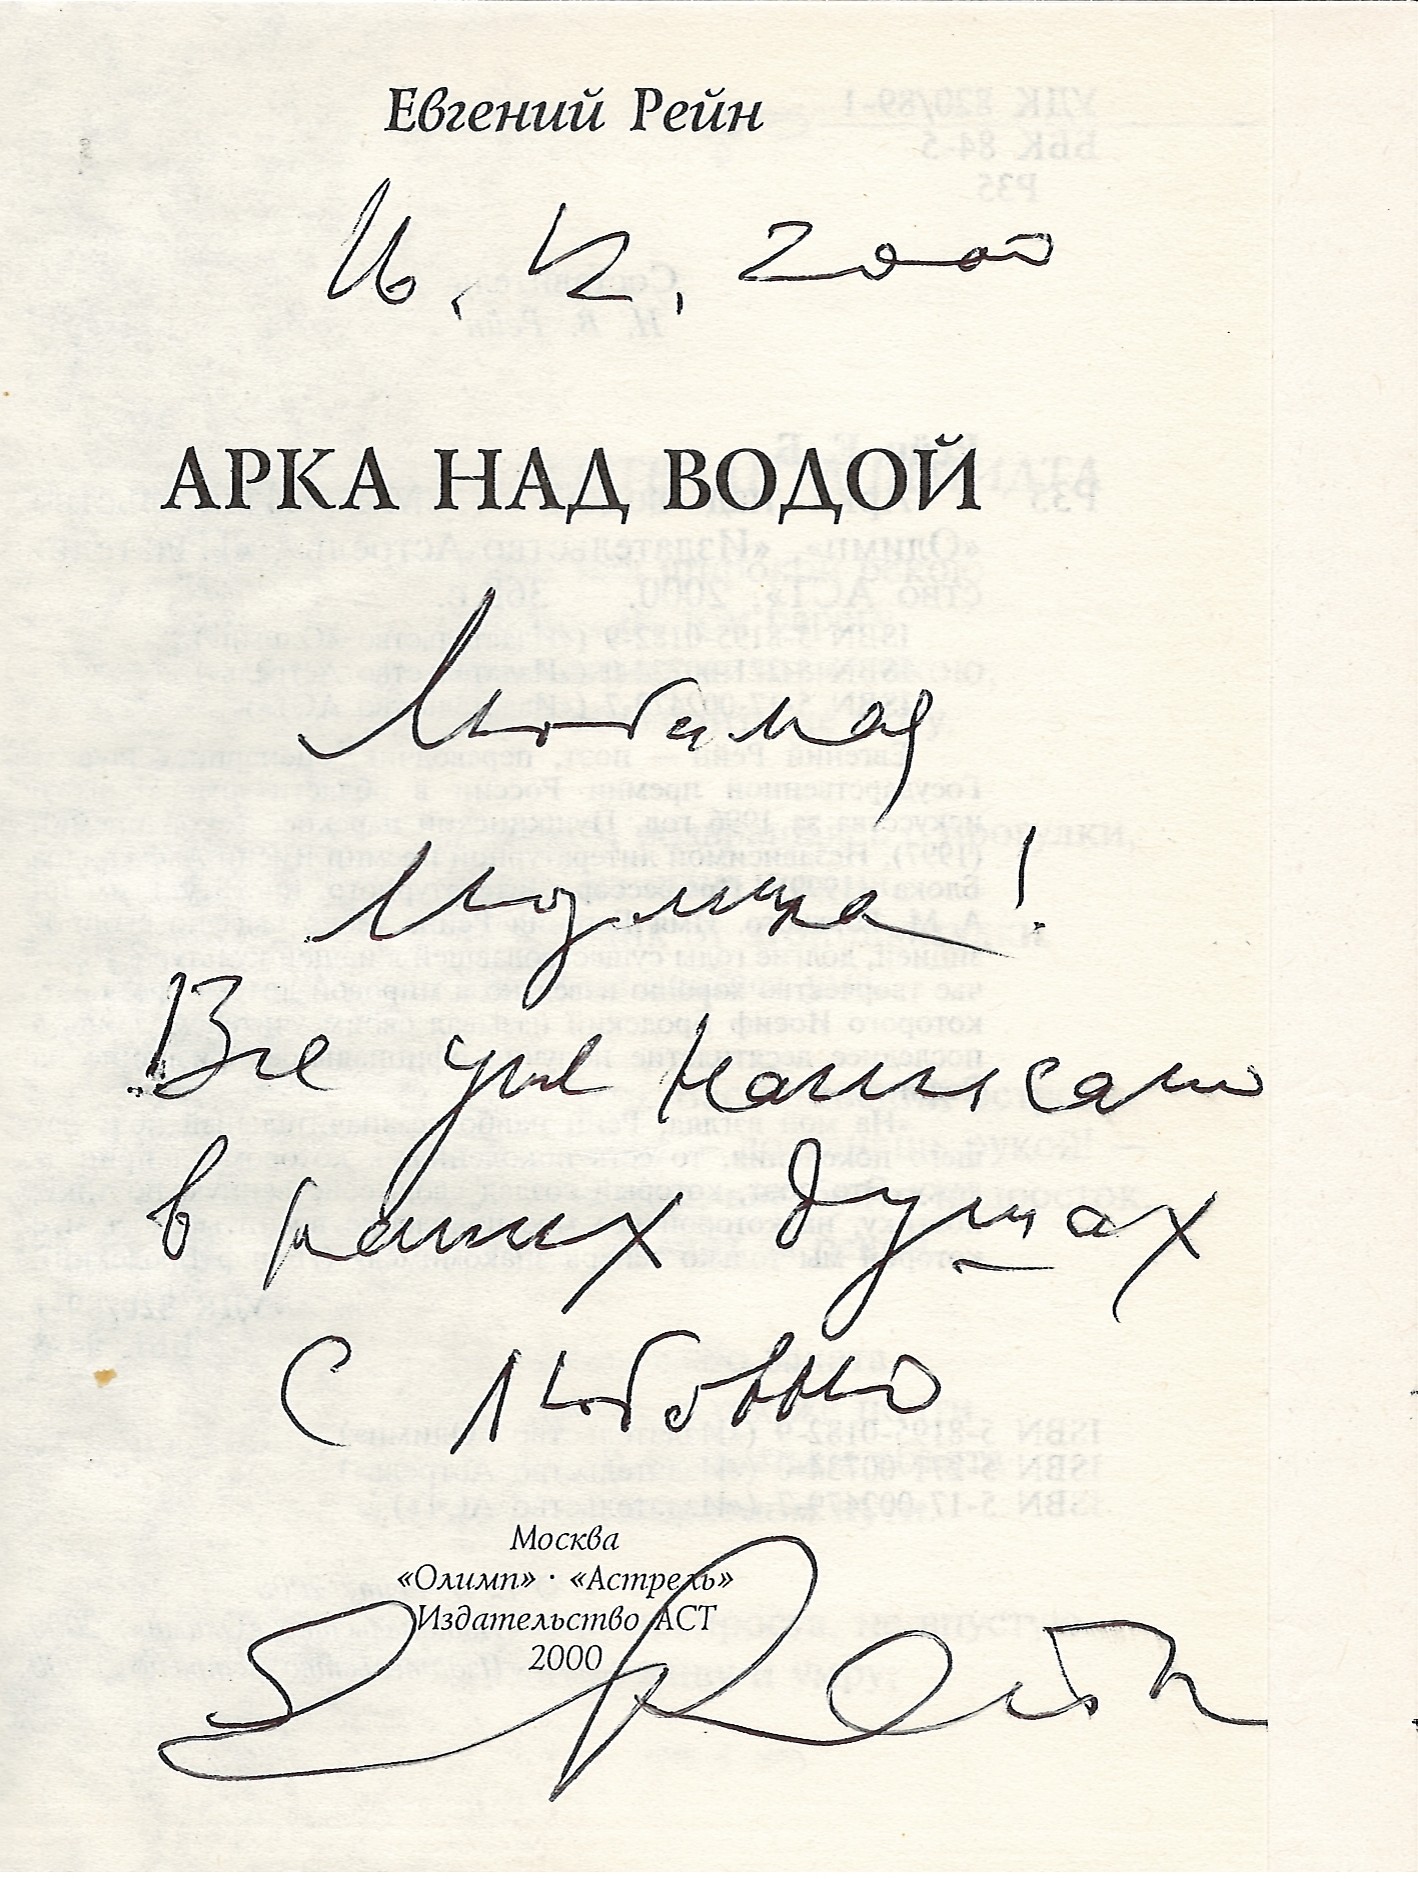 Евгений Рейн
16. 12. 2000
АРКА НАД ВОДОЙ
Любимая
Людмила!
Все уже написано
в наших душах
С любовью
Москва
«Олимп» · «Астрель»
Издательство АСТ
2000
Е Рейн